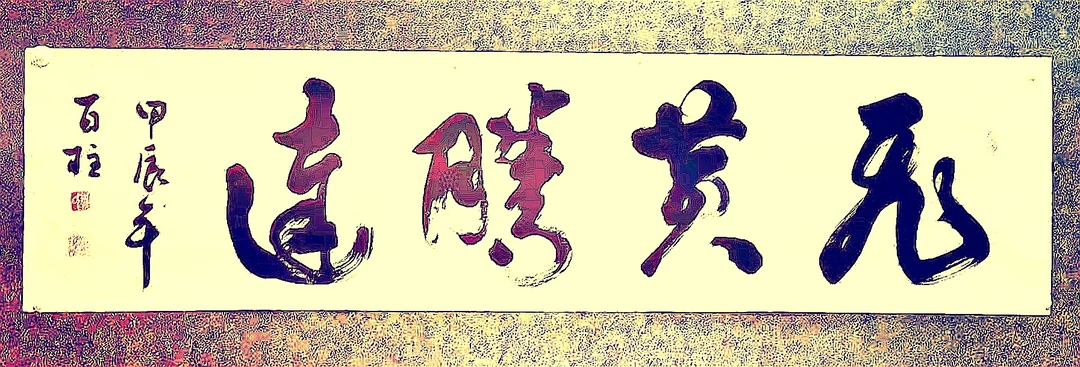 飞黄腾达
甲辰年
百柱